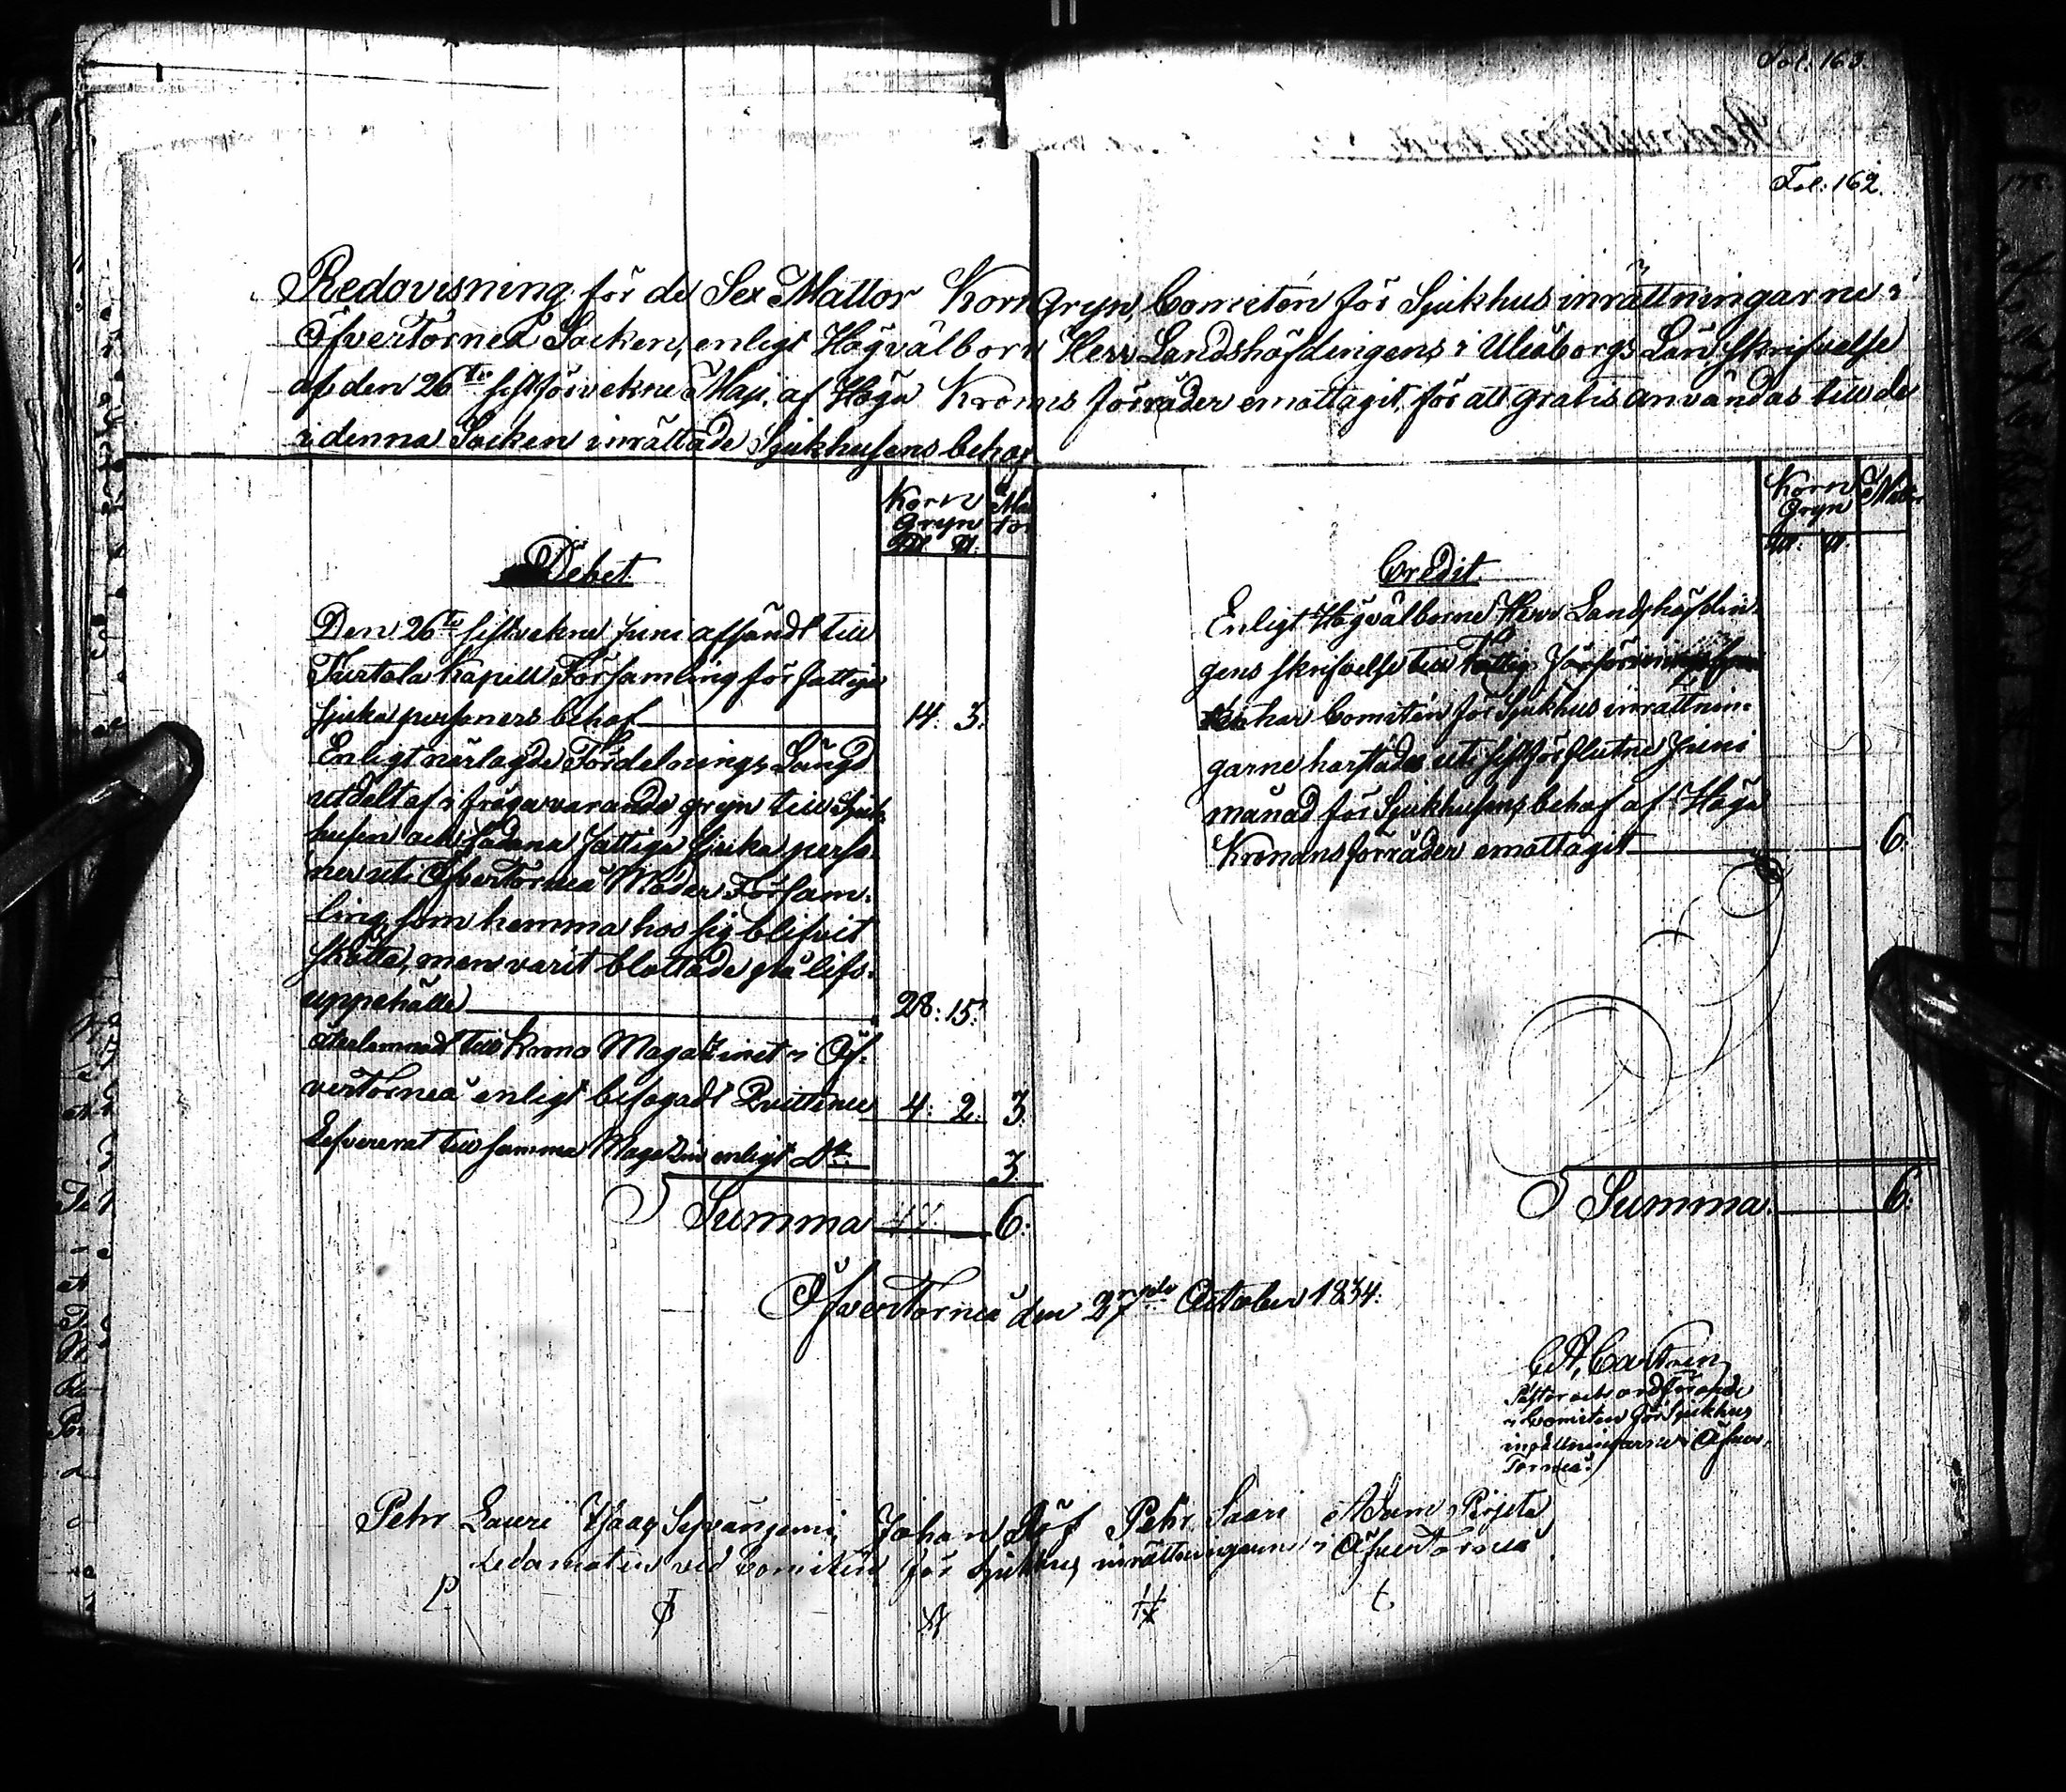 Fol. 163.
Fol: 162.
Redovisning för de Sex Mattor Korn Gryn, Comitén för Sjukhus inrättningarne i
Öfvertorneå Socken, enligt Högvälborne Herr Landshöfdingens i Uleåborgs Län skrifvelse
af den 26te sistförvekne Maji, af Höga Krones förråder emottagit, för att gratis användas till de
i denna Socken inrättade Sjukhusens behof
Korn Gryn Mattor
Debet
Den 26te sistvekne Juni afsändt till
Turtola Kapell Församling för fattiga
sjuka personers behof 14. 3.
Enligt närlagde Fördelnings Längd
utdelt af i frågavarande gryn till Sjuk
husen och sådana fattiga sjuka perso-
ner uti Öfvertorneå Moder Försam-
ling som hemma hos sig blifvit
skötta, men varit blottade på lifs-
uppehälle 28: 15.
återlemnadt till Krono Magazinet i Öf-
vertorneå enligt bifogadt Qvittence 4: 2. 3.
Lefvererat till samma Magazin enligt Do 3
Summa 47. 6:
Korn Gryn Mattor
Credit
Enligt Högvälborne Herr Landshöfdin-
gens skrifvelse till
har Comitén för Sjukhus inrättnin-
garne härstädes uti sistförflutne Juni
månad för Sjukhusens behof af Höga
Kronans förråder emottagit 6.
Summa 6.
Öfvertorneå den 27 October 1834.
C A, Castrén
Pastor och ordförande
i Comitén för Sjukhus
inrättningarne i Öfver-
Torneå.
Pehr Lauri Johan Pehr Saari Adam
Ledamöter vid Comitén för Sjukhus inrättningarne i Öfvertorneå